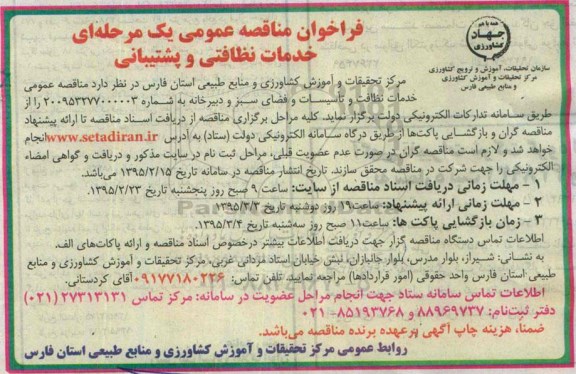 فراخوان مناقصه عمومی یک مرحله‌ای
خدمات نظافتی و پشتیبانی
همه با هم
جهاد
کشاورزی
سازمان تحقیقات، آموزش و ترویج کشاورزی
مرکز تحقیقات و آموزش کشاورزی
و منابع طبیعی فارس
مرکز تحقیقات و آموزش کشاورزی و منابع طبیعی استان فارس در نظر دارد مناقصه عمومی
خدمات نظافت و تأسیسات و فضای سبز و دبیرخانه به شماره ۲۰۰۹۵۳۲۷۷۰۰۰۰۰۳ را از
طریق سامانه تدارکات الکترونیکی دولت برگزار نماید. کلیه مراحل برگزاری مناقصه از دریافت اسناد مناقصه تا ارائه پیشنهاد
مناقصه گران و بازگشایی پاکت‌ها از طریق درگاه سامانه الکترونیکی دولت (ستاد) به آدرس www.setadiran.ir انجام
خواهد شد و لازم است مناقصه گران در صورت عدم عضویت قبلی، مراحل ثبت نام در سایت مذکور و دریافت و گواهی امضاء
الکترونیکی را جهت شرکت در مناقصه محقق سازند. تاریخ انتشار مناقصه در سامانه تاریخ ۱۳۹۵/۲/۱۵ می‌باشد.
۱ - مهلت زمانی دریافت اسناد مناقصه از سایت: ساعت ۹ صبح روز پنجشنبه تاریخ ۱۳۹۵/۲/۲۳
۲ - مهلت زمانی ارائه پیشنهاد: ساعت ۱۹ روز دوشنبه تاریخ ۱۳۹۵/۳/۳
۳ - زمان بازگشایی پاکت ها: ساعت ۱۱ صبح روز سه‌شنبه تاریخ ۱۳۹۵/۳/۴
اطلاعات تماس دستگاه مناقصه گزار جهت دریافت اطلاعات بیشتر درخصوص اسناد مناقصه و ارائه پاکت‌های الف.
به نشانی: شیراز، بلوار مدرس، بلوار جانبازان، نبش خیابان استاد مردانی غربی، مرکز تحقیقات و آموزش کشاورزی و منابع
طبیعی استان فارس واحد حقوقی (امور قراردادها) مراجعه نمایند. تلفن تماس: ۰۹۱۷۷۱۸۰۲۲۶ آقای کردستانی.
اطلاعات تماس سامانه ستاد جهت انجام مراحل عضویت در سامانه: مرکز تماس ۲۷۳۱۳۱۳۱ (۰۲۱)
دفتر ثبت‌نام: ۸۸۹۶۹۷۳۷ و ۸۵۱۹۳۷۶۸ - ۰۲۱
ضمناً، هزینه چاپ آگهی بر عهده برنده مناقصه می‌باشد.
روابط عمومی مرکز تحقیقات و آموزش کشاورزی و منابع طبیعی استان فارس